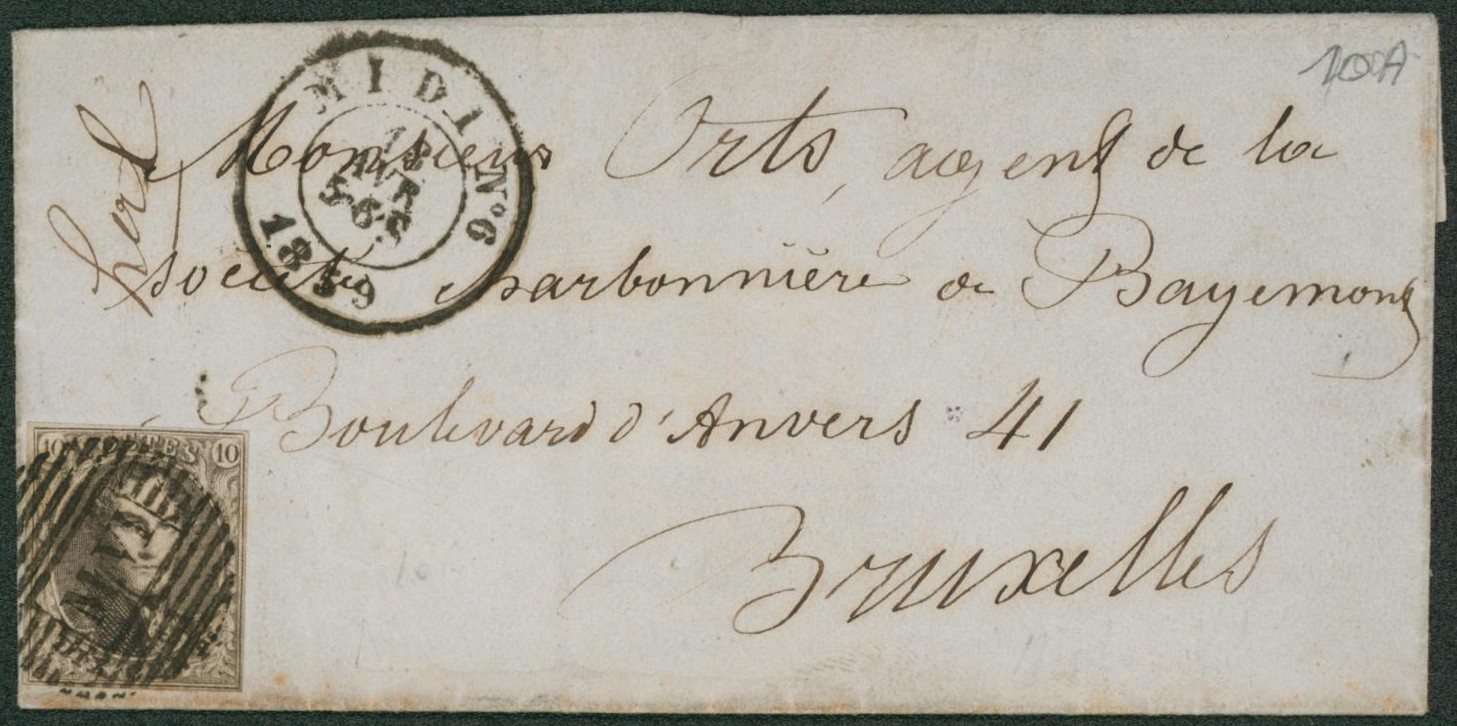 10A
MIDI N° 6
12
AVR
5-6S
1859
Monsieur Orts, agent de la
société charbonnière de Bayemont
Boulevard d'Anvers 41
Bruxelles
10 POSTES 10